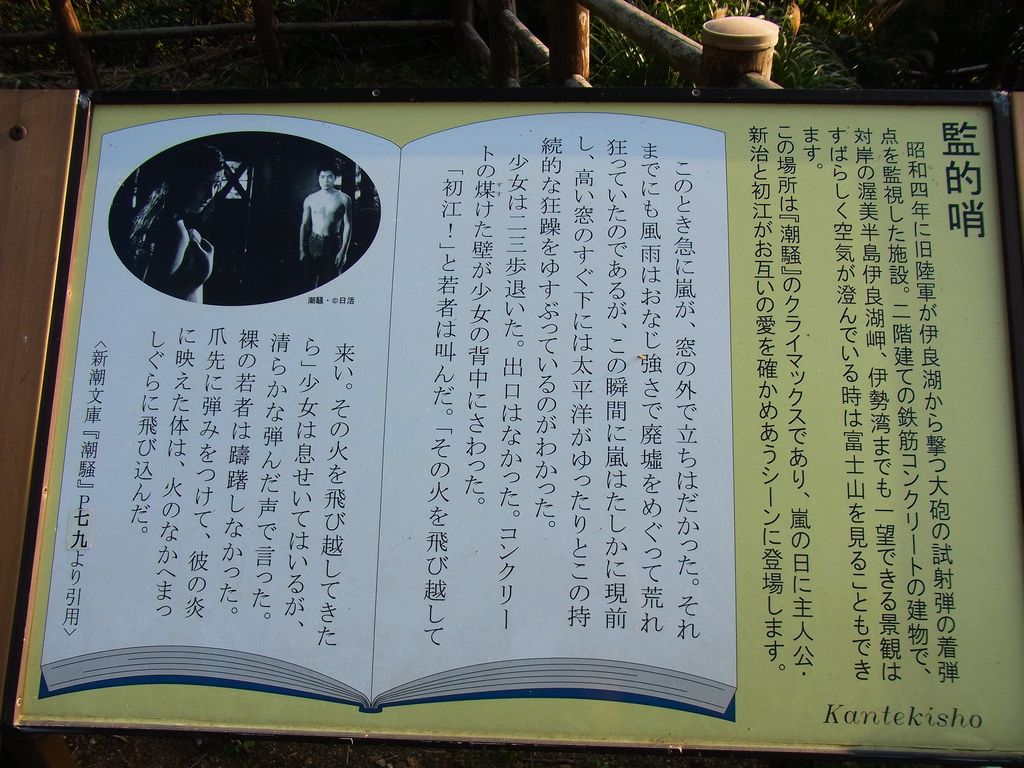 監的哨
昭和四年に旧陸軍が伊良湖から撃つ大砲の試射弾の着弾
点を監視した施設。二階建ての鉄筋コンクリートの建物で、
対岸の渥美半島伊良湖岬、伊勢湾までも一望できる景観は
すばらしく空気が澄んでいる時は富士山を見ることもでき
ます。
この場所は『潮騒』のクライマックスであり、嵐の日に主人公・
新治と初江がお互いの愛を確かめあうシーンに登場します。
このとき急に嵐が、窓の外で立ちはだかった。それ
までにも風雨はおなじ強さで廃墟をめぐって荒れ
狂っていたのであるが、この瞬間に嵐はたしかに現前
し、高い窓のすぐ下には太平洋がゆったりとこの持
続的な狂躁をゆすぶっているのがわかった。
少女は二三歩退いた。出口はなかった。コンクリー
トの煤けた壁が少女の背中にさわった。
すす
「初江！」と若者は叫んだ。「その火を飛び越して
来い。その火を飛び越してきた
ら」少女は息せいてはいるが、
清らかな弾んだ声で言った。
裸の若者は躊躇しなかった。
爪先に弾みをつけて、彼の炎
に映えた体は、火のなかへまっ
しぐらに飛び込んだ。
〈新潮文庫『潮騒』P七九より引用〉
潮騒・©日活
Kantekisho